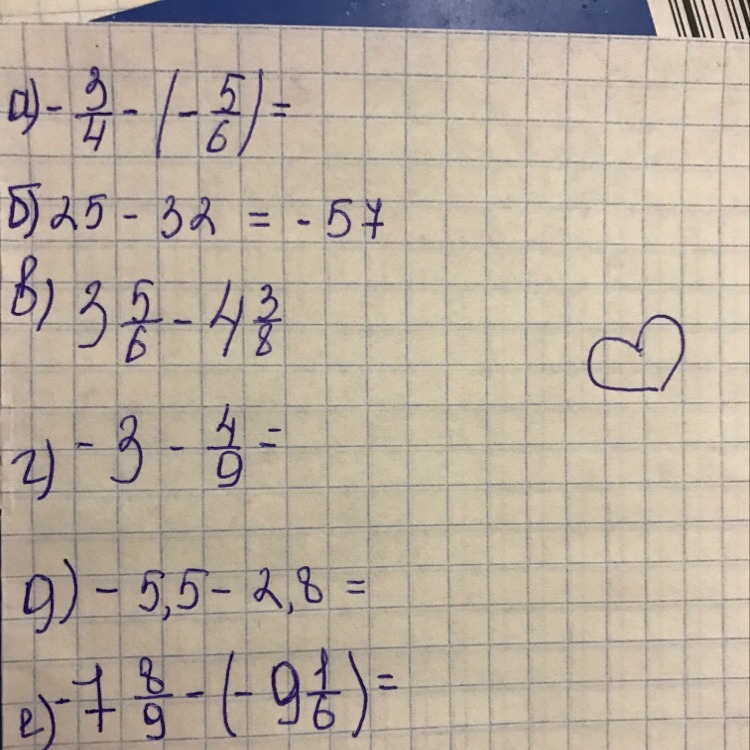 а) - 3/4 - (- 5/6) =
б) 25 - 32 = - 57
в) 3 5/6 - 4 3/8
г) - 3 - 4/9 =
д) - 5,5 - 2,8 =
е) - 7 8/9 - (- 9 1/6) =